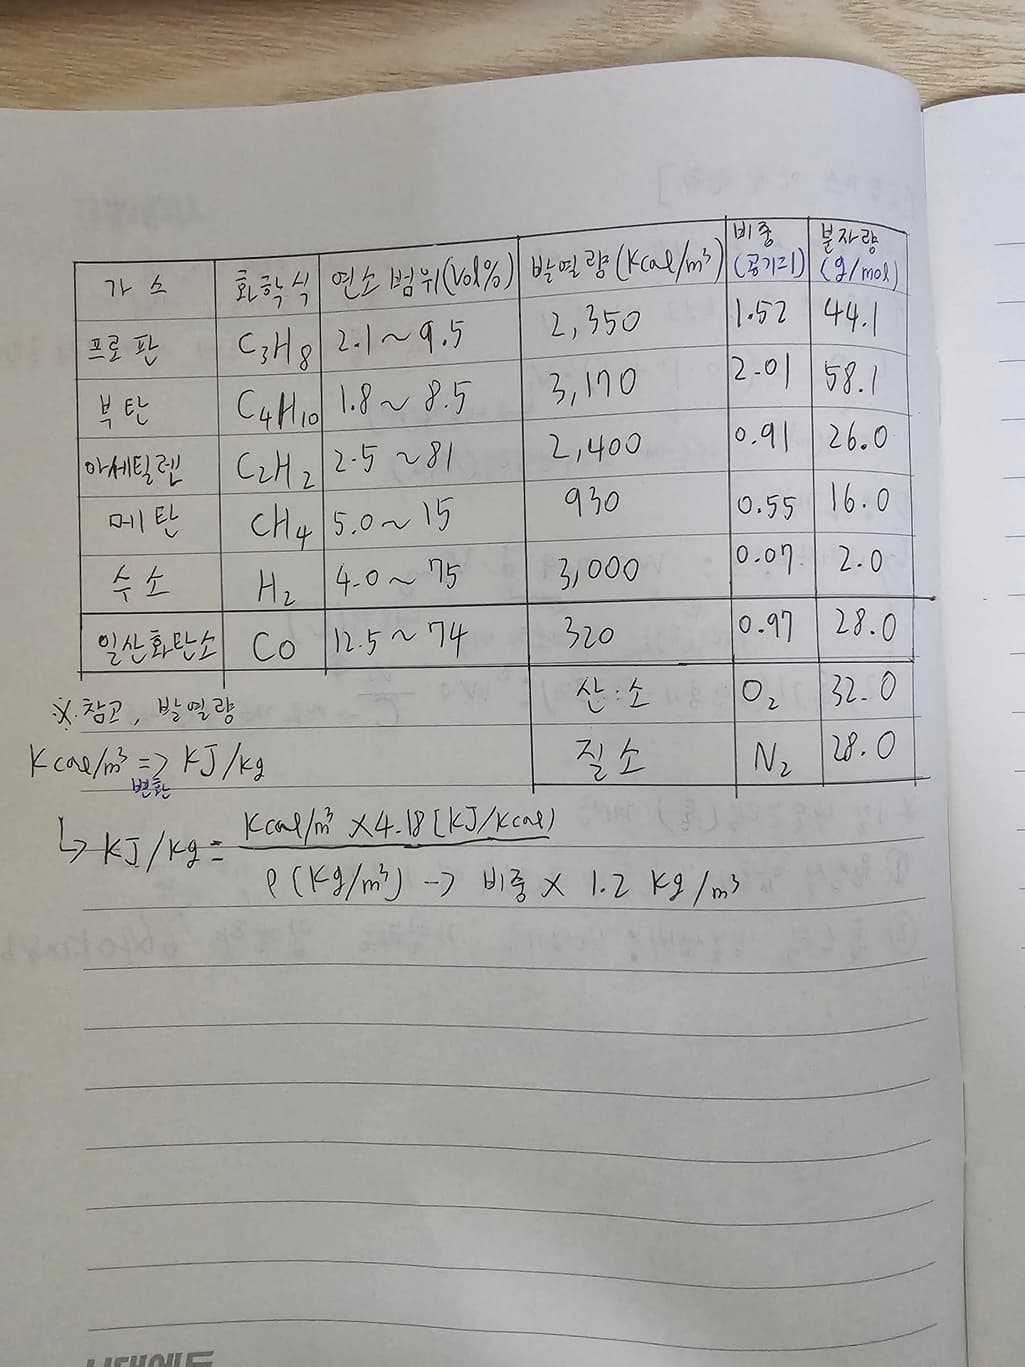 가 스 화학식 연소 범위(Vol%) 발열량(Kcal/m³) 비중(공기1) 분자량(g/mol)
프로판 C₃H₈ 2.1~9.5 2,350 1.52 44.1
부탄 C₄H₁₀ 1.8~8.5 3,170 2.01 58.1
아세틸렌 C₂H₂ 2.5~81 2,400 0.91 26.0
메탄 CH₄ 5.0~15 930 0.55 16.0
수소 H₂ 4.0~75 3,000 0.07 2.0
일산화탄소 CO 12.5~74 320 0.97 28.0
산소 O₂ 32.0
질소 N₂ 28.0
※ 참고, 발열량
Kcal/m³ => KJ/kg
변환
↳ KJ/kg = Kcal/m³ × 4.18 [KJ/Kcal)
ρ(Kg/m³) -> 비중 × 1.2 Kg/m³